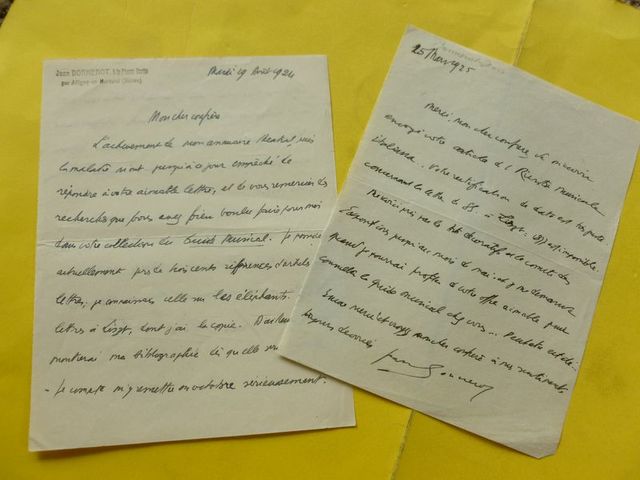 Jean BONNEROT,
Mardi 19 Août 1924
Mon cher confrère
L'achèvement de mon annuaire
la maladie m'ont jusqu'à ce jour empêché de
répondre à votre aimable lettre, et je vous remercie des
recherches que vous avez bien voulu faire pour moi
dans votre collection du Guide Musical. Je possède
actuellement près de trois cents références d'articles
lettres; je connaissais celle sur les éléphants.
lettres à Liszt, dont j'ai la copie. D'ailleurs
montrerai ma bibliographie dès qu'elle
- Je compte m'y remettre en octobre sérieusement.
25 Mars 1925
Merci, mon cher confrère, de m'avoir
envoyé votre article de la Rivista Musicale
Italiana. Votre rectification de date est très juste
concernant la lettre de SS. à Liszt.
jusqu'au mois de mai et je me demande
quand je pourrai profiter de votre offre aimable pour
consulter le Guide musical chez vous...
Encore merci et croyez mon cher confrère à mes sentiments
toujours dévoués
Jean Bonnerot